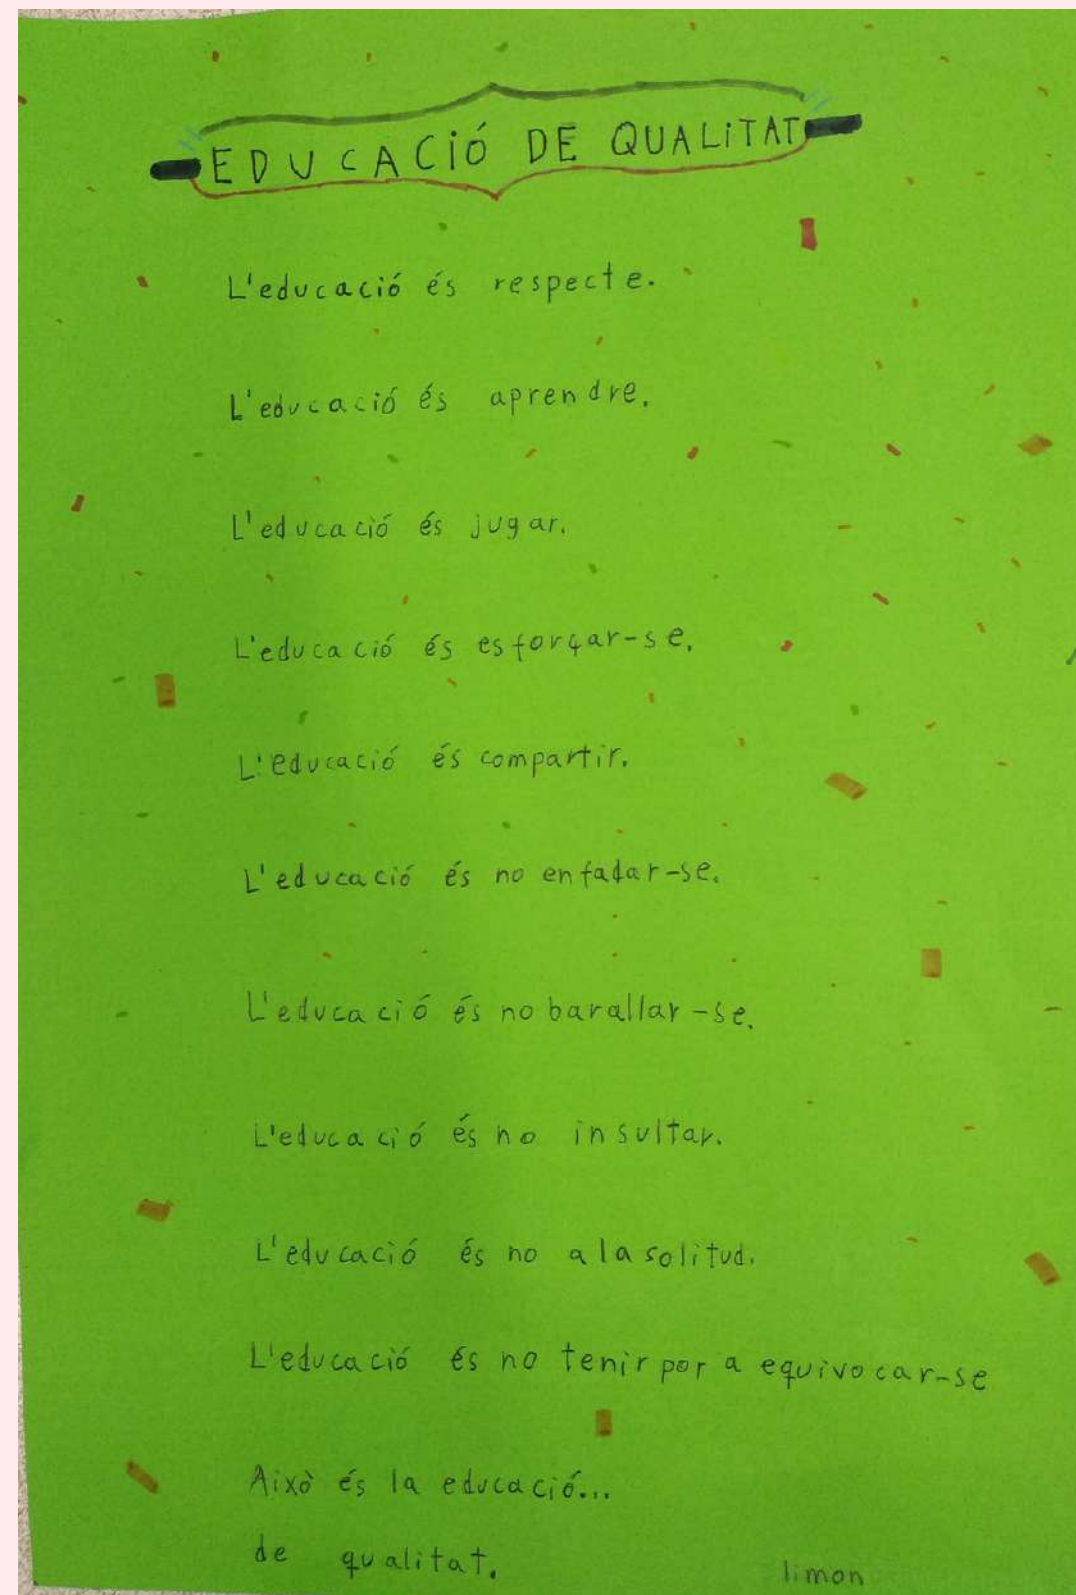 EDUCACIÓ DE QUALITAT
L'educació és respecte.
L'educació és aprendre.
L'educació és jugar.
L'educació és esforçar-se.
L'educació és compartir.
L'educació és no enfadar-se.
L'educació és no barallar-se.
L'educació és no insultar.
L'educació és no a la solitud.
L'educació és no tenir por a equivocar-se
Això és la educació...
de qualitat.
limon